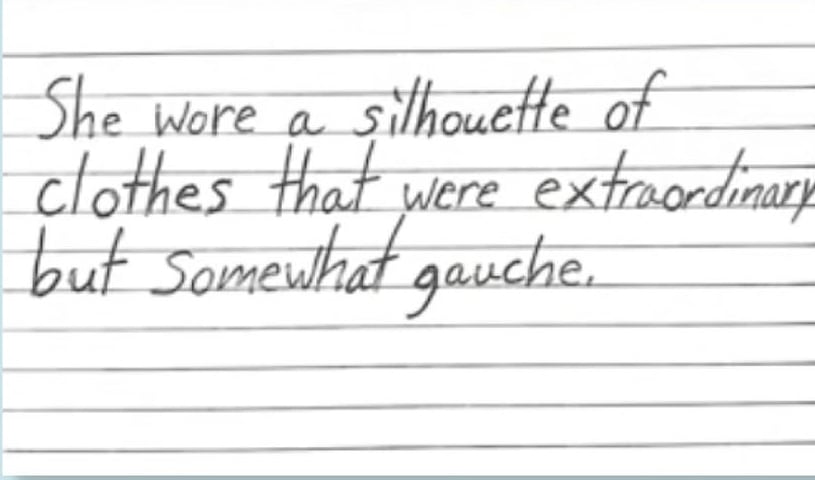 She wore a silhouette of
clothes that were extraordinary
but somewhat gauche.